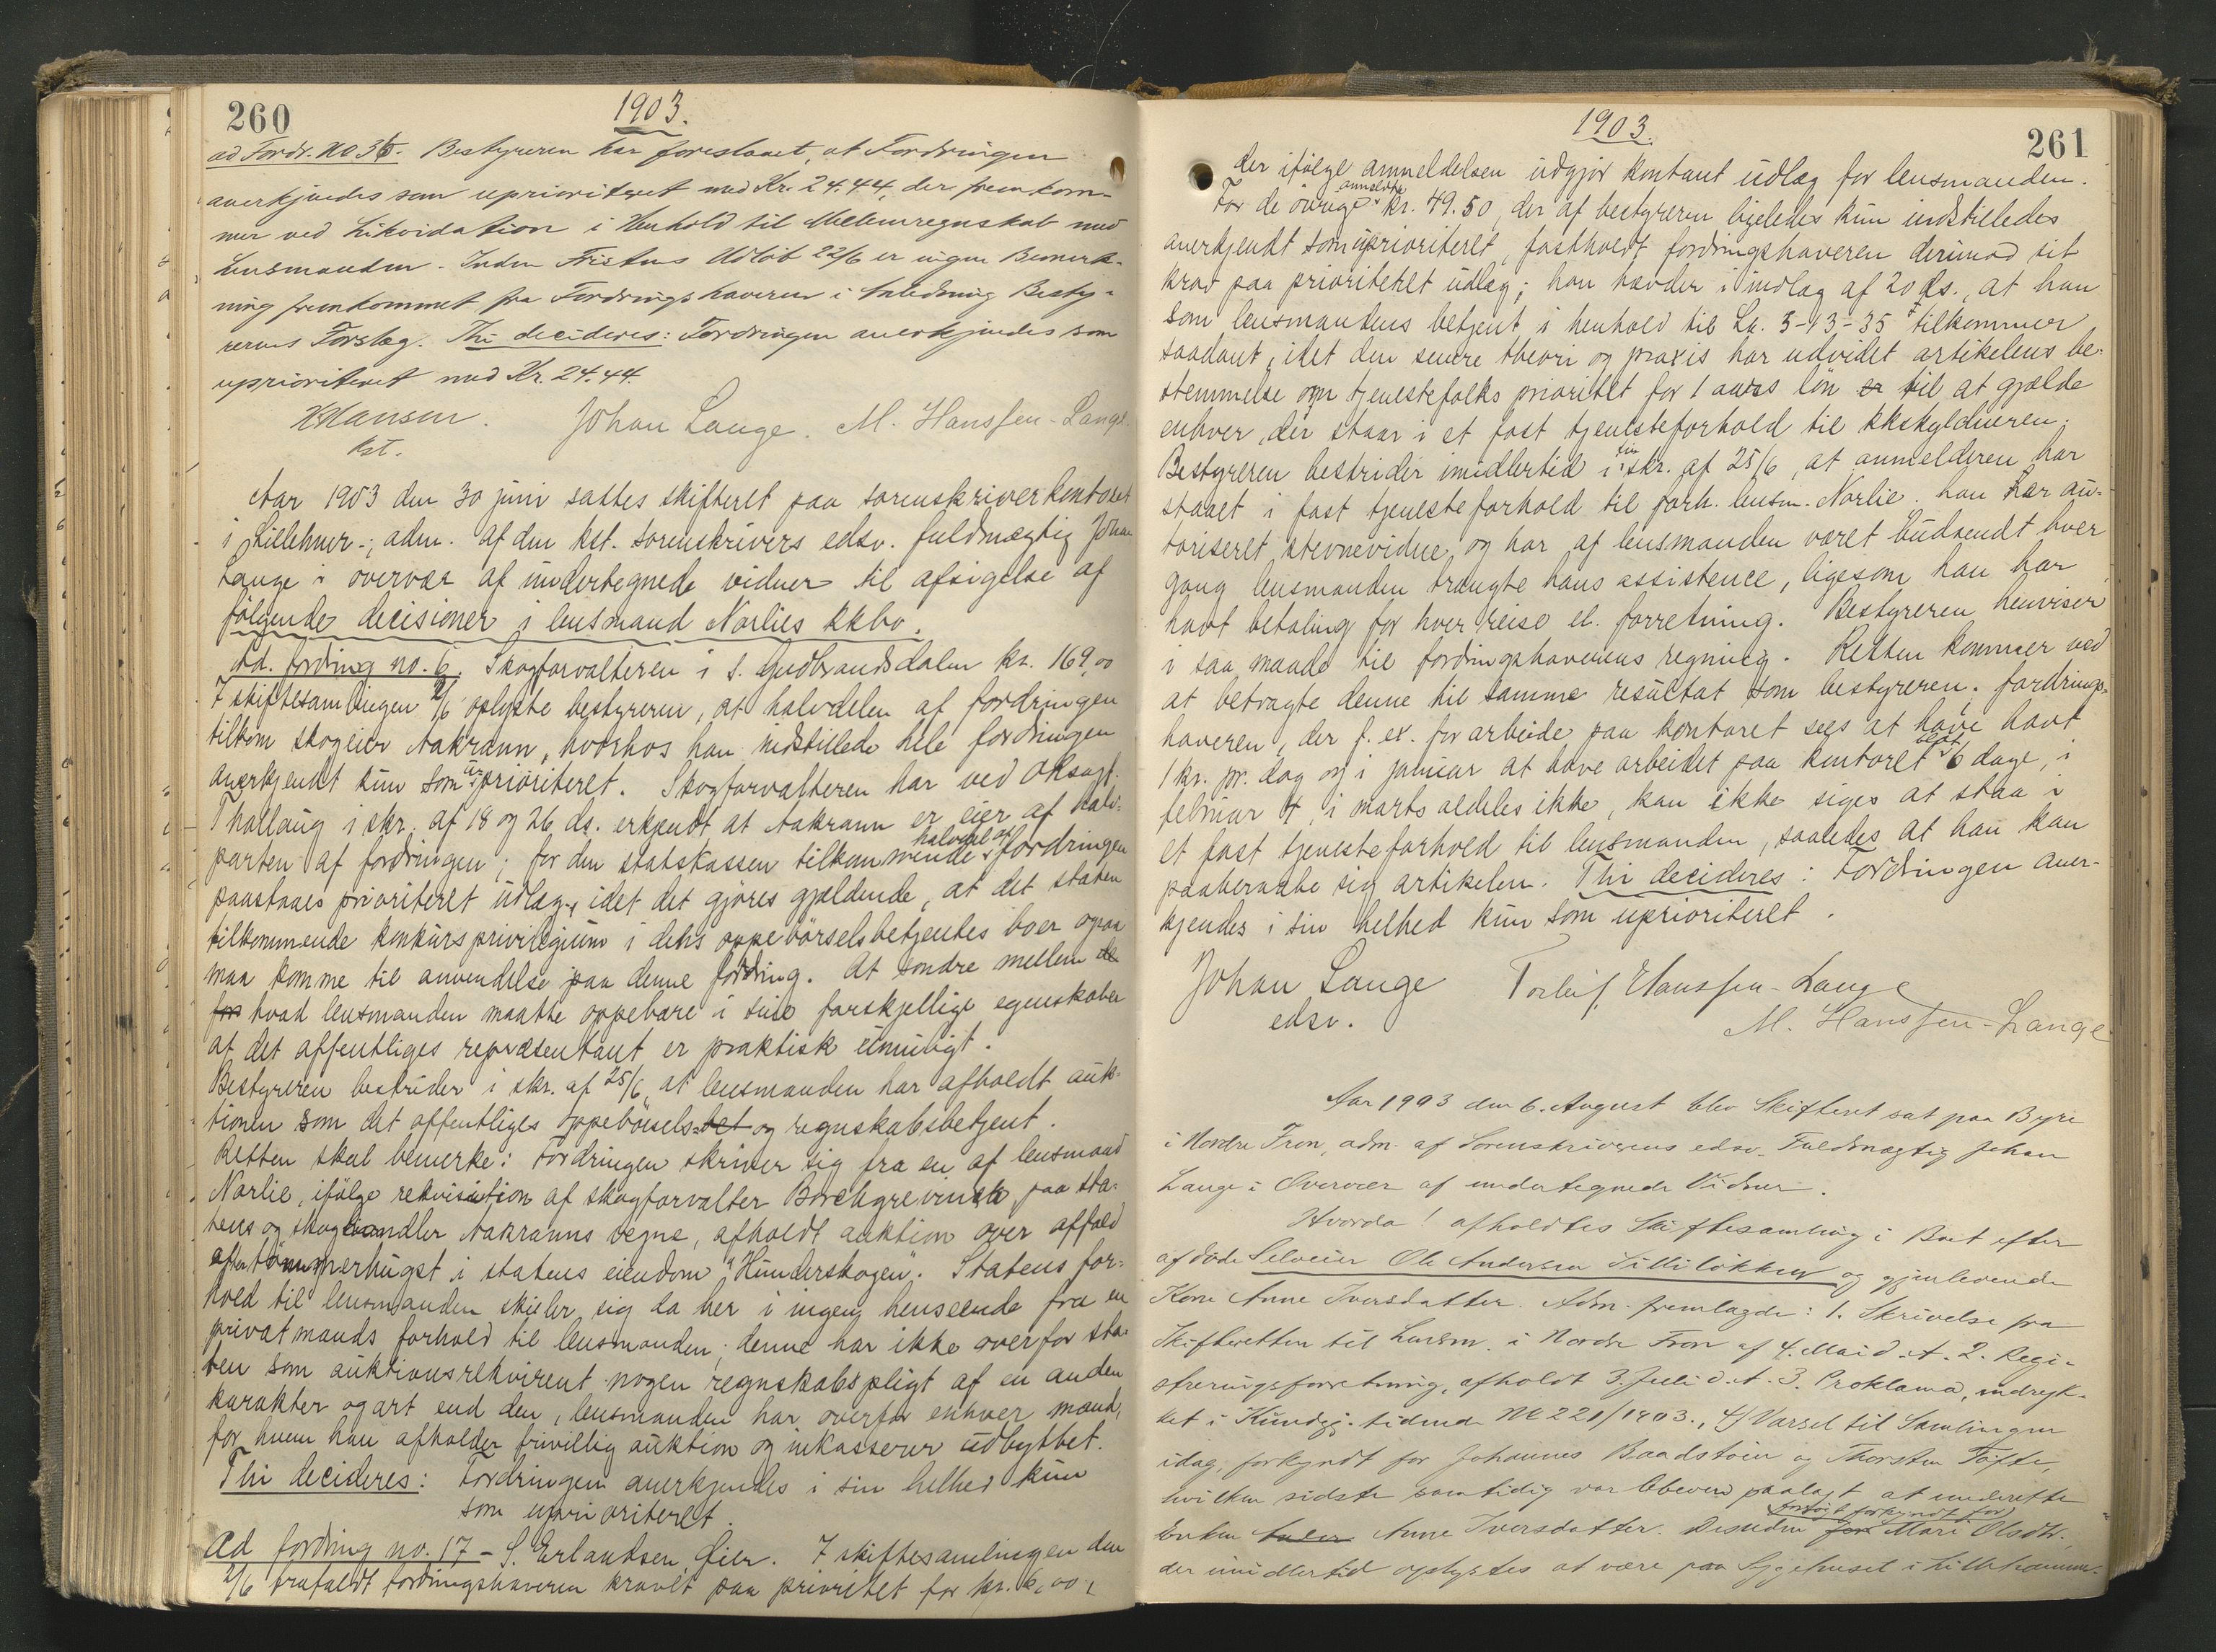 260
1903.
ad Fordr. No 36. Bestyreren har foreslaaet, at Fordringen
anerkjendes som uprioriteret med Kr. 24.44, der fremkom-
mer ved Likvidation i Henhold til Mellemregnskab med
Lensmanden. Inden Fristens Udløb 22/6 er ingen Bemærk-
ning fremkommet fra Fordringshaveren i Anledning Besty-
rerens Forslag. Thi decideres: Fordringen anerkjendes som
uprioriteret med Kr. 24.44.
Hansen. Johan Lange. M. Hanssen-Lange.
kst.
Aar 1903 den 30 juni sattes skifteret paa sorenskriverkontoret
i Lillehmer-; adm. af den kst. sorenskrivers edsv. fuldmægtig Johan
Lange i overvær af undertegnede vidner til afsigelse af
følgende decisioner i lensmand Norlies kkbo.
Ad. fordring no. 6. Skogforvalteren i S. Gudbrandsdalen kr. 169,00
I skiftesamlingen 2/6 oplyste bestyreren, at halvdelen af fordringen
tilkom skogeier Aakrann, hvorhos han indstillede hele fordringen
anerkjendt kun som uprioriteret. Skogforvalteren har ved Oksagf.
Thallaug i skr. af 18 og 26 ds. erkjendt at Aakrann er eier af halv-
parten af fordringen; for den statskassen tilkommende halvdel af fordringen
paastaaes prioriteret udlæg, idet det gjøres gjældende, at det staten
tilkommende konkursprivilegium i dens oppebørselsbetjentes boer ogsaa
maa komme til anvendelse paa denne fordring. At sondre mellem de
for hvad lensmanden maatte oppebære i sine forskjellige egenskaber
af det offentliges repræsentant er praktisk umuligt.
Bestyreren bestrider i skr. af 25/6, at lensmanden har afholdt auk-
tionen som det offentliges oppebørsels- bet og regnskabsbetjent.
Retten skal bemerke: Fordringen skriver sig fra en af lensmand
Norlie, ifølge rekvisition af skogforvalter Borchgrevink paa sta-
tens og skoghandler Aakranns vegne, afholdt auktion over affald
efter tømmerhugst i statens eiendom "Hunderskogen". Statens for-
hold til lensmanden skiller sig da her i ingen henseende fra en
privatmands forhold til lensmanden; denne har ikke overfor sta-
ten som auktionsrekvirent nogen regnskabspligt af en anden
karakter og art end den, lensmanden har overfor enhver mand,
for hvem han afholder frivillig auktion og inkasserer udbyttet.
Thi decideres: Fordringen anerkjendes i sin helhed kun
som uprioriteret.
Ad fordring no. 17 - S. Erlandsen Øier. I skiftesamlingen den
2/6 frafaldt fordringshaveren kravet paa prioritet for kr. 6,00,
1903.
261
der ifølge anmeldelsen udgjør kontant udlæg for lensmanden.
For de øvrige anmeldte kr. 49.50, der af bestyreren ligeledes kun indstilledes
anerkjendt som uprioriteret, fastholdt fordringshaveren derimod sit
krav paa prioritetet udlæg; han hævder i indlæg af 20 ds., at han
som lensmandens betjent i henhold til L. 3-13-35 tilkommer
saadant, idet den senere theori og praxis har udvidet artikelens be-
stemmelse om tjenestefolks prioritet for 1 aars løn er til at gjælde
enhver, der staar i et fast tjenesteforhold til kkskyldneren.
Bestyreren bestrider imidlertid i sin skr. af 25/6, at anmelderen har
staaet i fast tjenesteforhold til forh. lensm. Norlie. han har au-
toriseret stevnevidne og har af lensmanden været budsendt hver
gang lensmanden trængte hans assistence, ligesom han har
havt betaling for hver reise el. forretning. Bestyreren henviser
i saa maade til fordringshaverens regning. Retten kommer ved
at betragte denne til samme resultat som bestyreren; fordrings-
haveren, der f. ex. for arbeide paa kontoret sees at have havt
1 kr. pr. dag og i januar at have arbeidet paa kontoret 6 dage, i
februar 4, i marts aldeles ikke, kan ikke siges at staa i
et fast tjenesteforhold til lensmanden, saaledes at han kan
paaberaabe sig artikelen. Thi decideres: Fordringen aner-
kjendes i sin helhed kun som uprioriteret.
Johan Lange Torleif Hanssen-Lange
edsv. M. Hanssen-Lange
Aar 1903 den 6. August blev Skifteret sat paa Byre
i Nordre Fron, adm. af Sorenskriverens edsv. Fuldmægtig Johan
Lange i Overvær af undertegnede Vidner.
Hvorda! afholdtes Skiftesamling i Boet efter
afdøde Selveier Ole Andersen Lilliløkken og gjenlevende
Kone Anne Iversdatter. Adm. fremlagde: 1. Skrivelse fra
Skifteretten til Lensm. i Nordre Fron af 4. Mai d. A. 2. Regi-
streringsforretning, afholdt 3. Juli d. A. 3. Proklama, indryk-
ket i Kundgj. tidende No 221/1903., 4) Varsel til Samlingen
idag, forkyndt for Johannes Baadstøen og Thorsten Tofte,
hvilken sidste samtidig var bleven paalagt at underrette
Enken Anne Iversdatter. Desuden forsøgt forkyndt for Mari Olsdtr.,
der imidlertid oplystes at være paa Sygehuset i Lillehammer